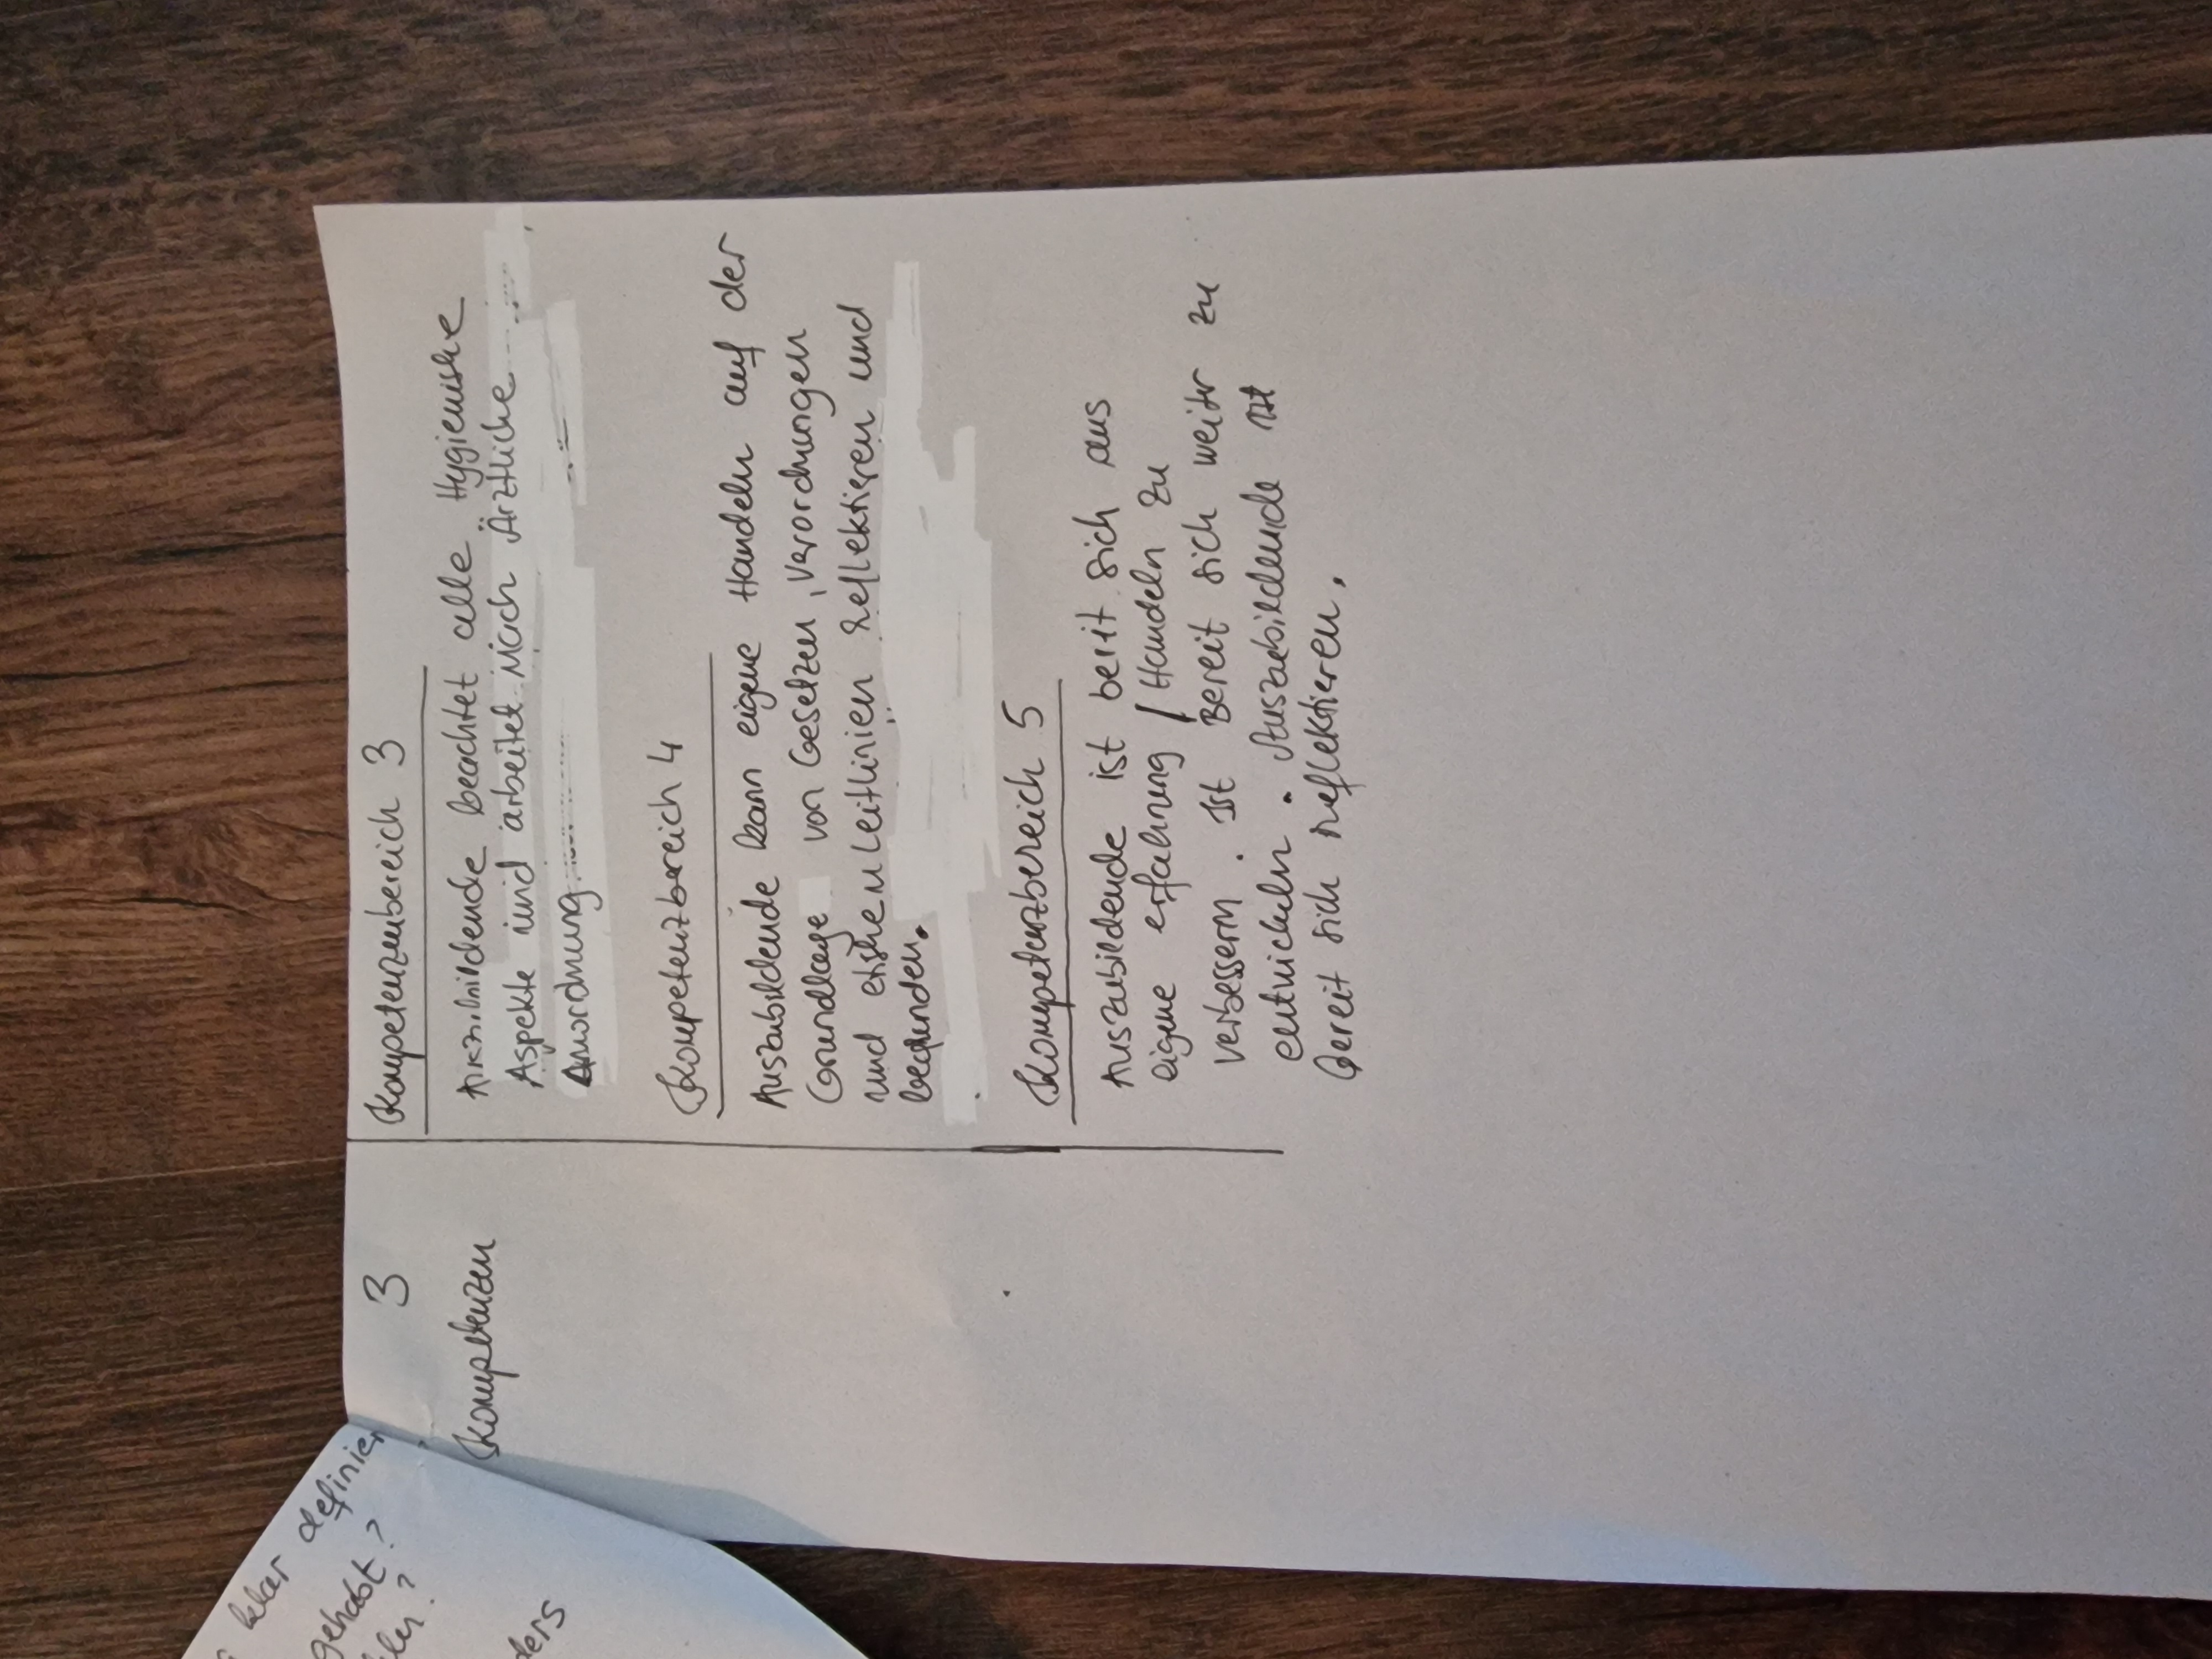 3
Kompetenzen
Kompetenzenbereich 3
Auszubildende beachtet alle Hygienische
Aspekte und arbeitet nach Ärztliche
Anordnung
Kompetenzbereich 4
Auszubildende kann eigene Handeln auf der
Grundlage von Gesetzen, Verordnungen
und ethischen Leitlinien Reflektieren und
begründen.
Kompetenzbereich 5
Auszubildende ist bereit sich aus
eigene erfahrung / Handeln zu
verbessern. Ist Bereit sich weiter zu
entwickeln. Auszubildende ist
Bereit sich reflektieren.
klar definier
gehabt?
ders